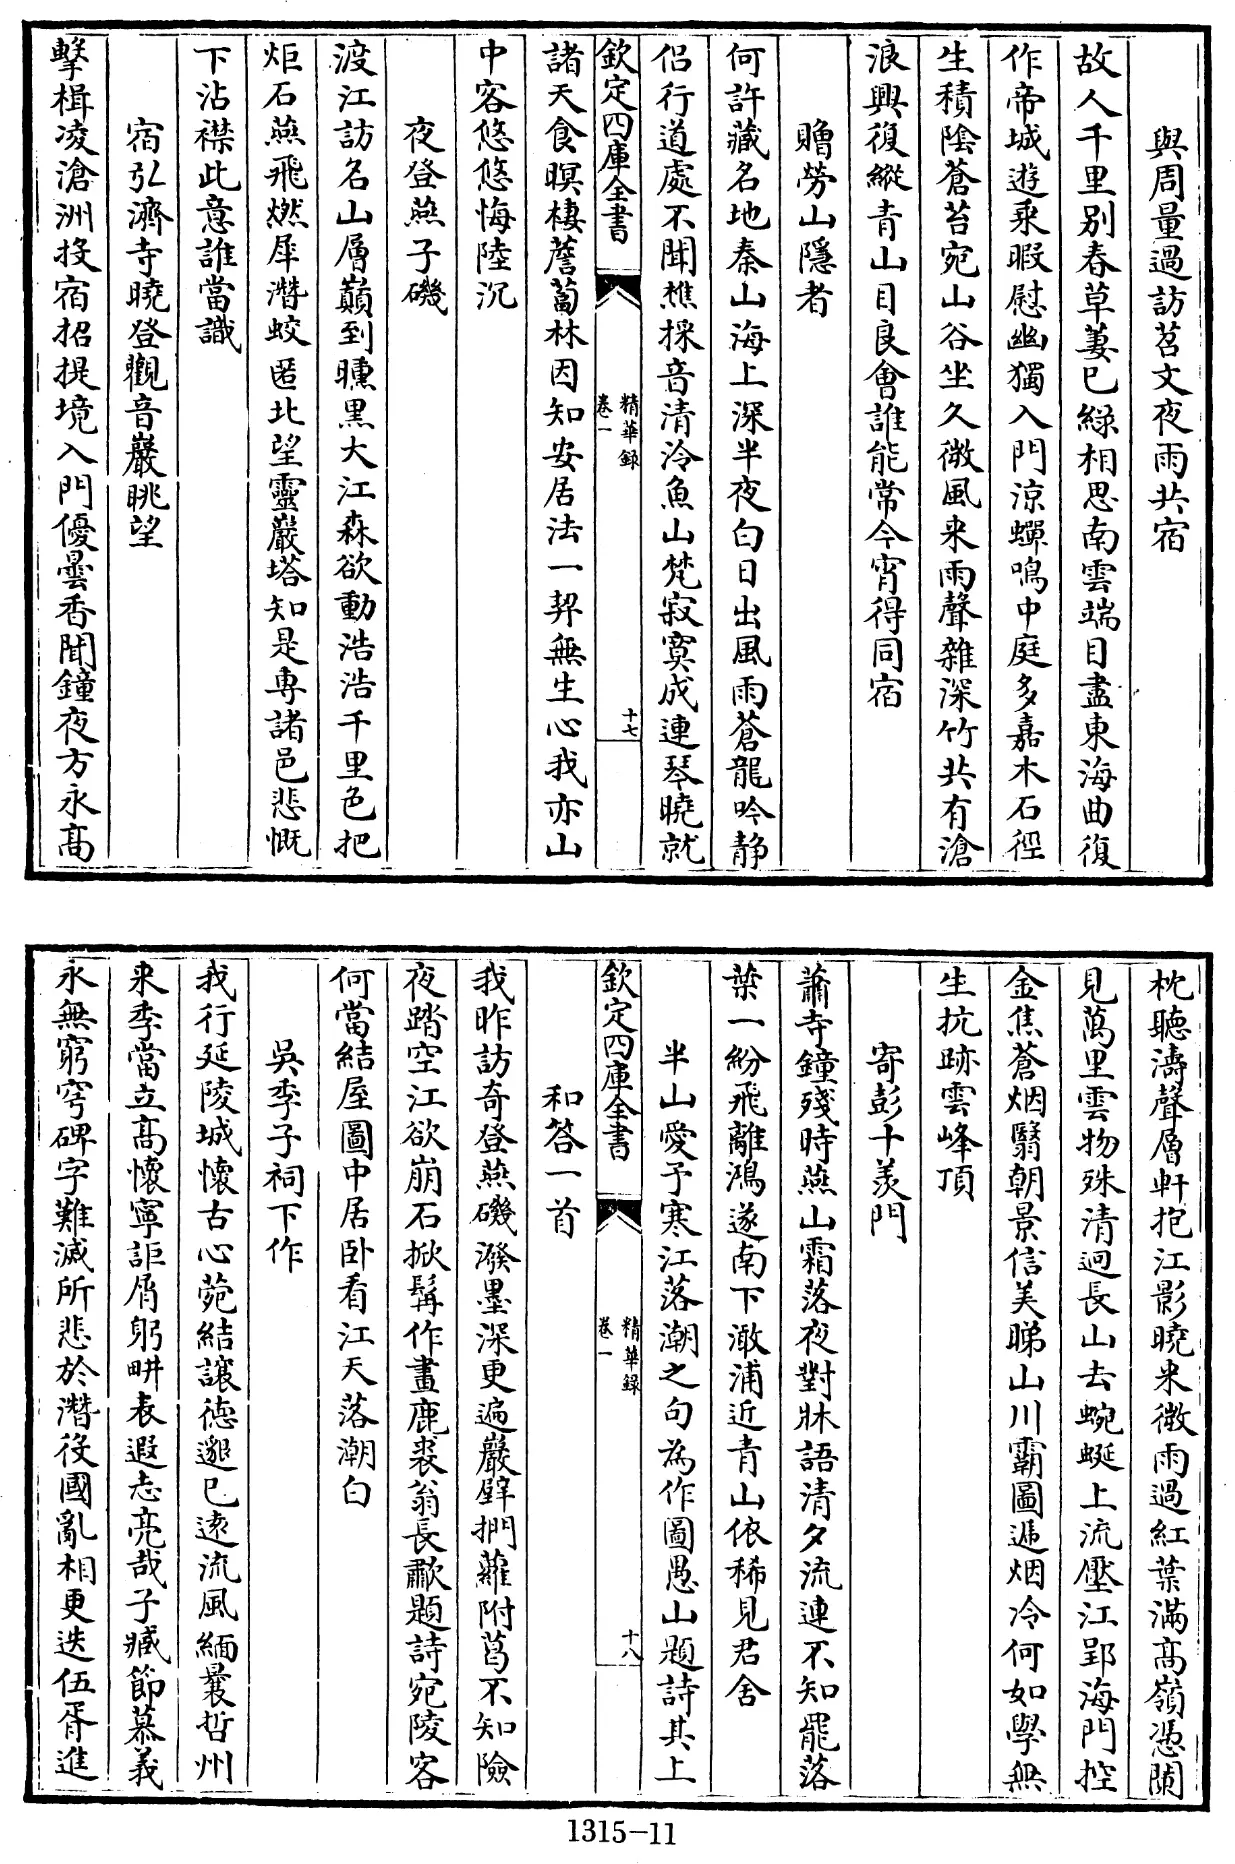 與周量過訪苕文夜雨共宿
故人千里别春草萋已緑相思南雲端目盡東海曲復
作帝城遊乘暇慰幽獨入門涼蟬鳴中庭多嘉木石徑
生積陰蒼苔宛山谷坐久微風来雨聲雜深竹共有滄
浪興復縱青山目良會誰能常今宵得同宿
贈勞山隱者
何許藏名地秦山海上深半夜白日出風雨蒼龍吟静
侣行道處不聞樵採音清泠魚山梵寂寞成連琴曉就
欽定四庫全書
精華録
卷一
十七
諸天食暝棲薝蔔林因知安居法一契無生心我亦山
中客悠悠悔陸沉
夜登燕子磯
渡江訪名山層巔到曛黒大江森欲動浩浩千里色把
炬石燕飛燃犀潛蛟匿北望靈巖塔知是專諸邑悲慨
下沾襟此意誰當識
宿弘濟寺曉登觀音巖眺望
擊楫凌滄洲投宿招提境入門優曇香聞鐘夜方永髙
枕聽濤聲層軒抱江影曉来微雨過紅葉滿髙嶺憑闌
見萬里雲物殊清迥長山去蜿蜒上流壓江郢海門控
金焦蒼烟翳朝景信美睇山川霸圖遞烟冷何如學無
生抗跡雲峰頂
寄彭十羡門
蕭寺鐘殘時燕山霜落夜對牀語清夕流連不知罷落
葉一紛飛離鴻遂南下澉浦近青山依稀見君舍
半山愛予寒江落潮之句為作圖愚山題詩其上
欽定四庫全書
精華録
卷一
十八
和答一首
我昨訪奇登燕磯潑墨深更遍巖壁捫蘿附葛不知險
夜踏空江欲崩石掀髯作畫鹿裘翁長歗題詩宛陵客
何當結屋圖中居卧看江天落潮白
吳季子祠下作
我行延陵城懷古心菀結讓德邈已逺流風緬曩哲州
来季當立髙懷寧詎屑躬畊表遐志亮哉子臧節慕義
永無窮穹碑字難滅所悲於潛役國亂相更迭伍胥進
1315-11